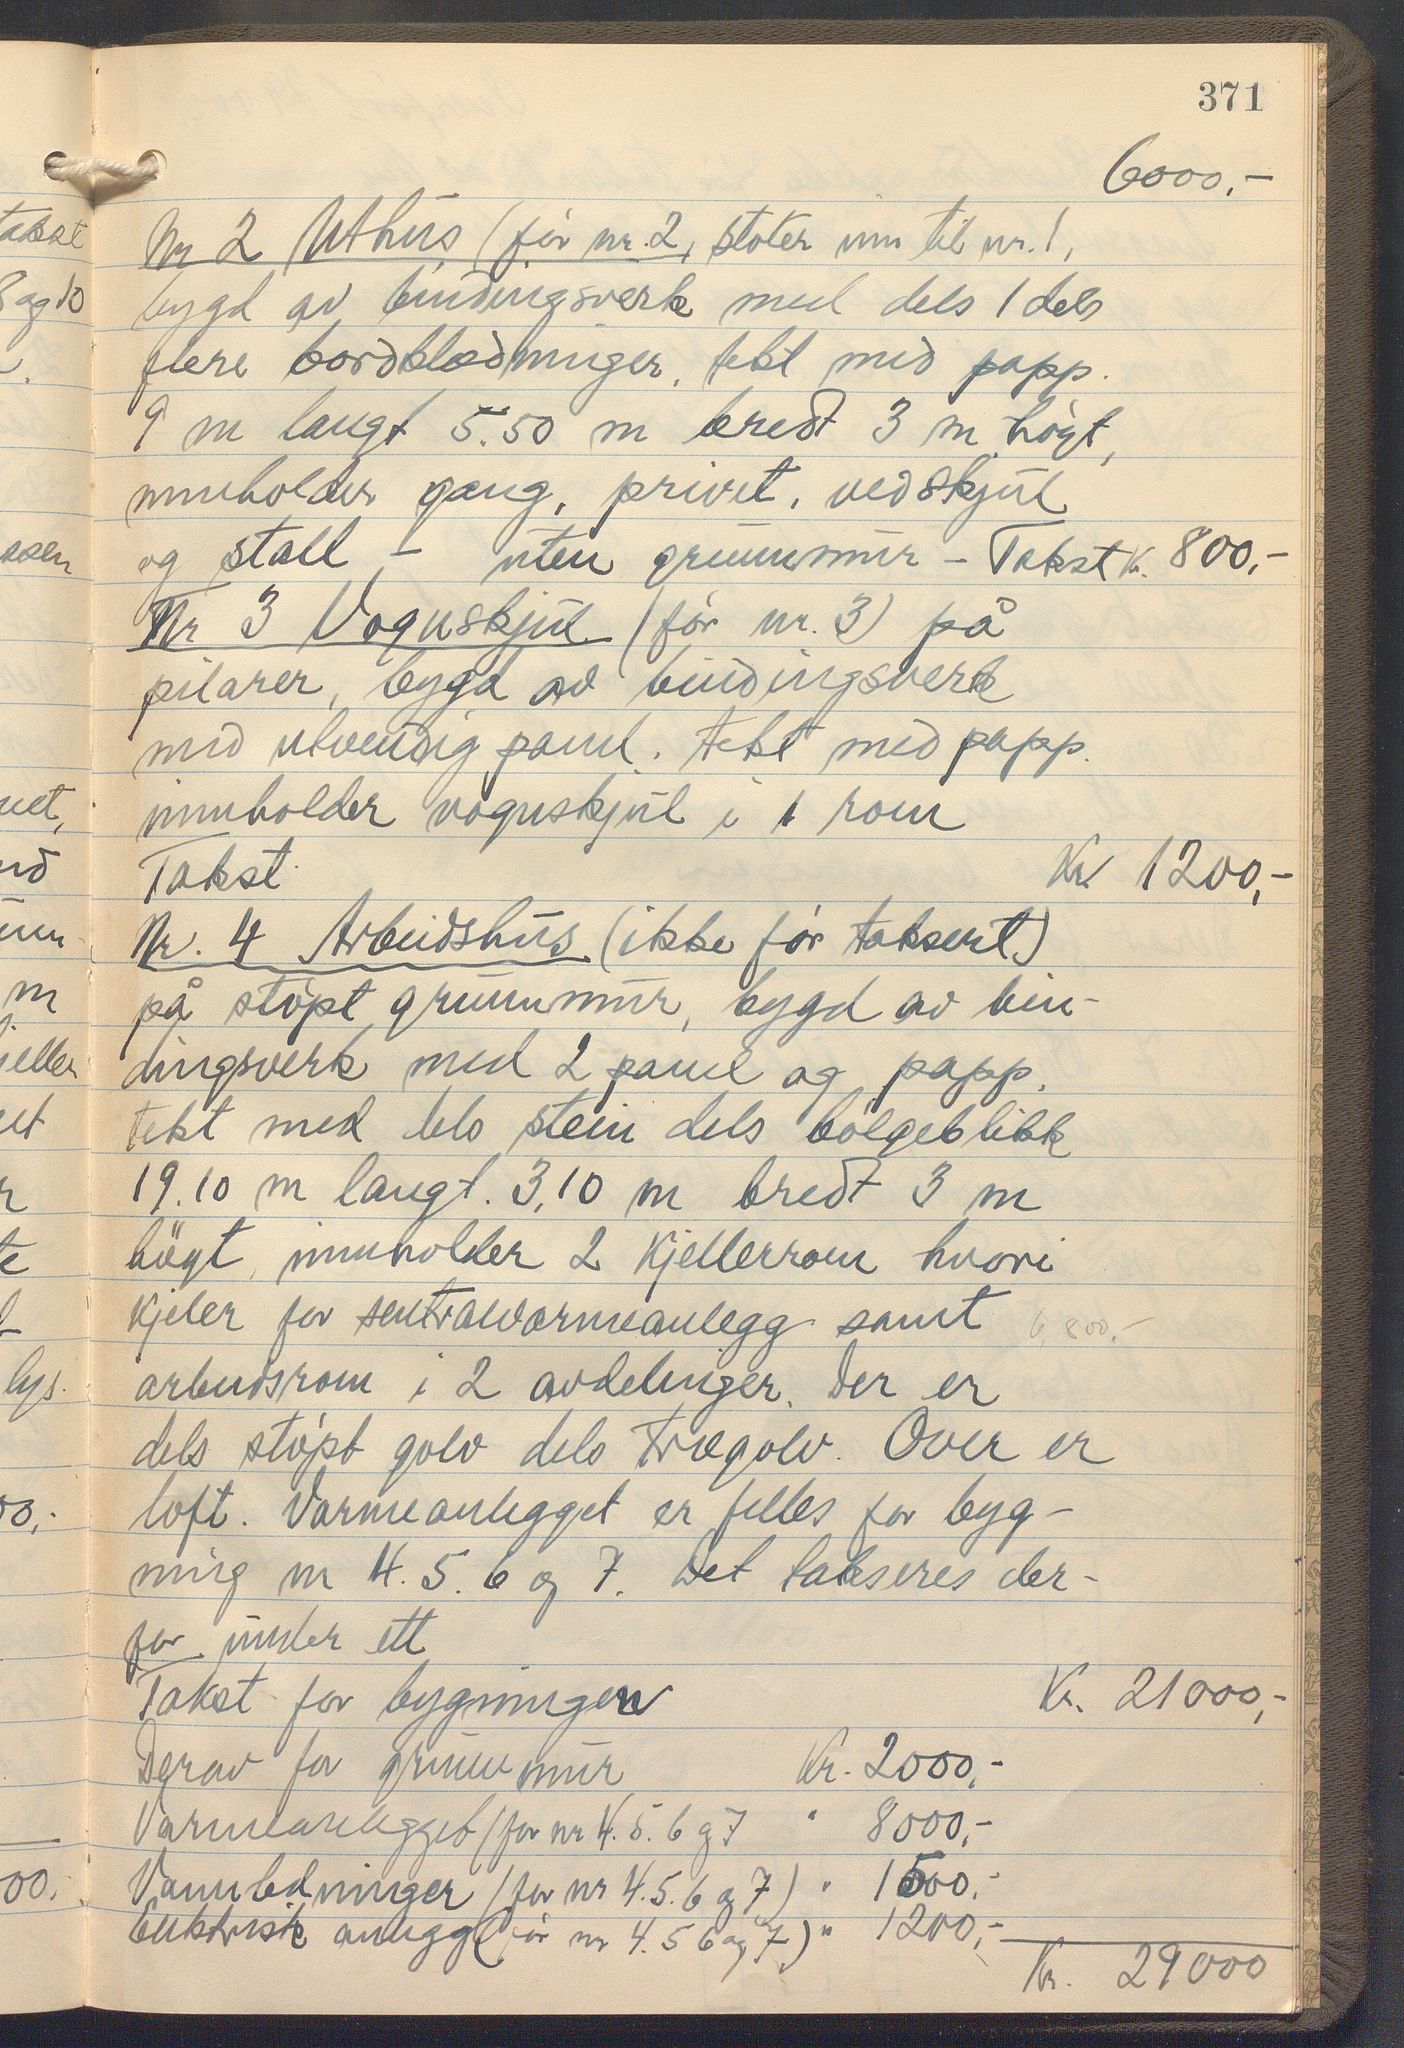 371
6000,-
Nr 2 Uthus (før nr. 2, støter inn til nr. 1,
bygd av bindingsverk med dels 1 dels
flere bordklædninger, tekt med papp.
9 m langt 5.50 m bredt 3 m høgt,
innholder gang, privet, vedskjul
og stall - uten grunnmur - Takst Kr. 800,-
Nr 3 Vognskjul (før nr. 3) på
pilarer, bygd av bindingsverk
med utvendig panel. tekt med papp.
innholder vognskjul i 1 rom
Takst Kr 1200,-
Nr. 4 Arbeidshus (ikke før taksert)
på støpt grunnmur, bygd av bin-
dingsverk med 2 panel og papp.
tekt med dels stein dels bølgeblikk
19.10 m langt. 3,10 m bredt 3 m
högt, innholder 2 kjellerrom hvori
kjeler for sentralvarmeanlegg samt
6,800,-
arbeidsrom i 2 avdelinger. Der er
dels støpt golv dels trægolv. Over er
loft. Varmeanlegget er felles for byg-
ning nr 4. 5. 6 og 7. Det takseres der-
for under ett
Takst for bygningen Kr. 21000,-
Derav for grunnmur Kr. 2000,-
Varmeanlegget (for nr 4. 5. 6 og 7 " 8000,-
Vannledninger (for nr 4. 5. 6 og 7) " 1500,-
Elektrisk anlegg (for nr 4. 5 6 og 7) " 1200,-
Kr. 29000
takst
8 og 10
ssen
m
jeller
lys.